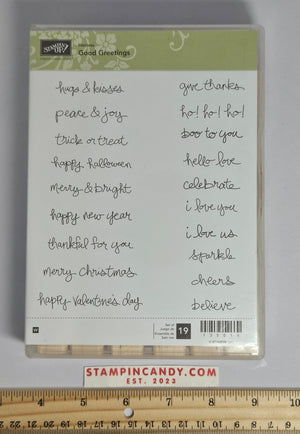 STAMPIN' UP!
Good Greetings
hugs & kisses
peace & joy
trick or treat
happy halloween
merry & bright
happy new year
thankful for you
merry Christmas
happy Valentine's day
give thanks
ho! ho! ho!
boo to you
hello love
celebrate
i love you
i love us
sparkle
cheers
believe
19
STAMPINCANDY.COM
EST. 2023
1 2 3 4 5 6 7 8 9 10